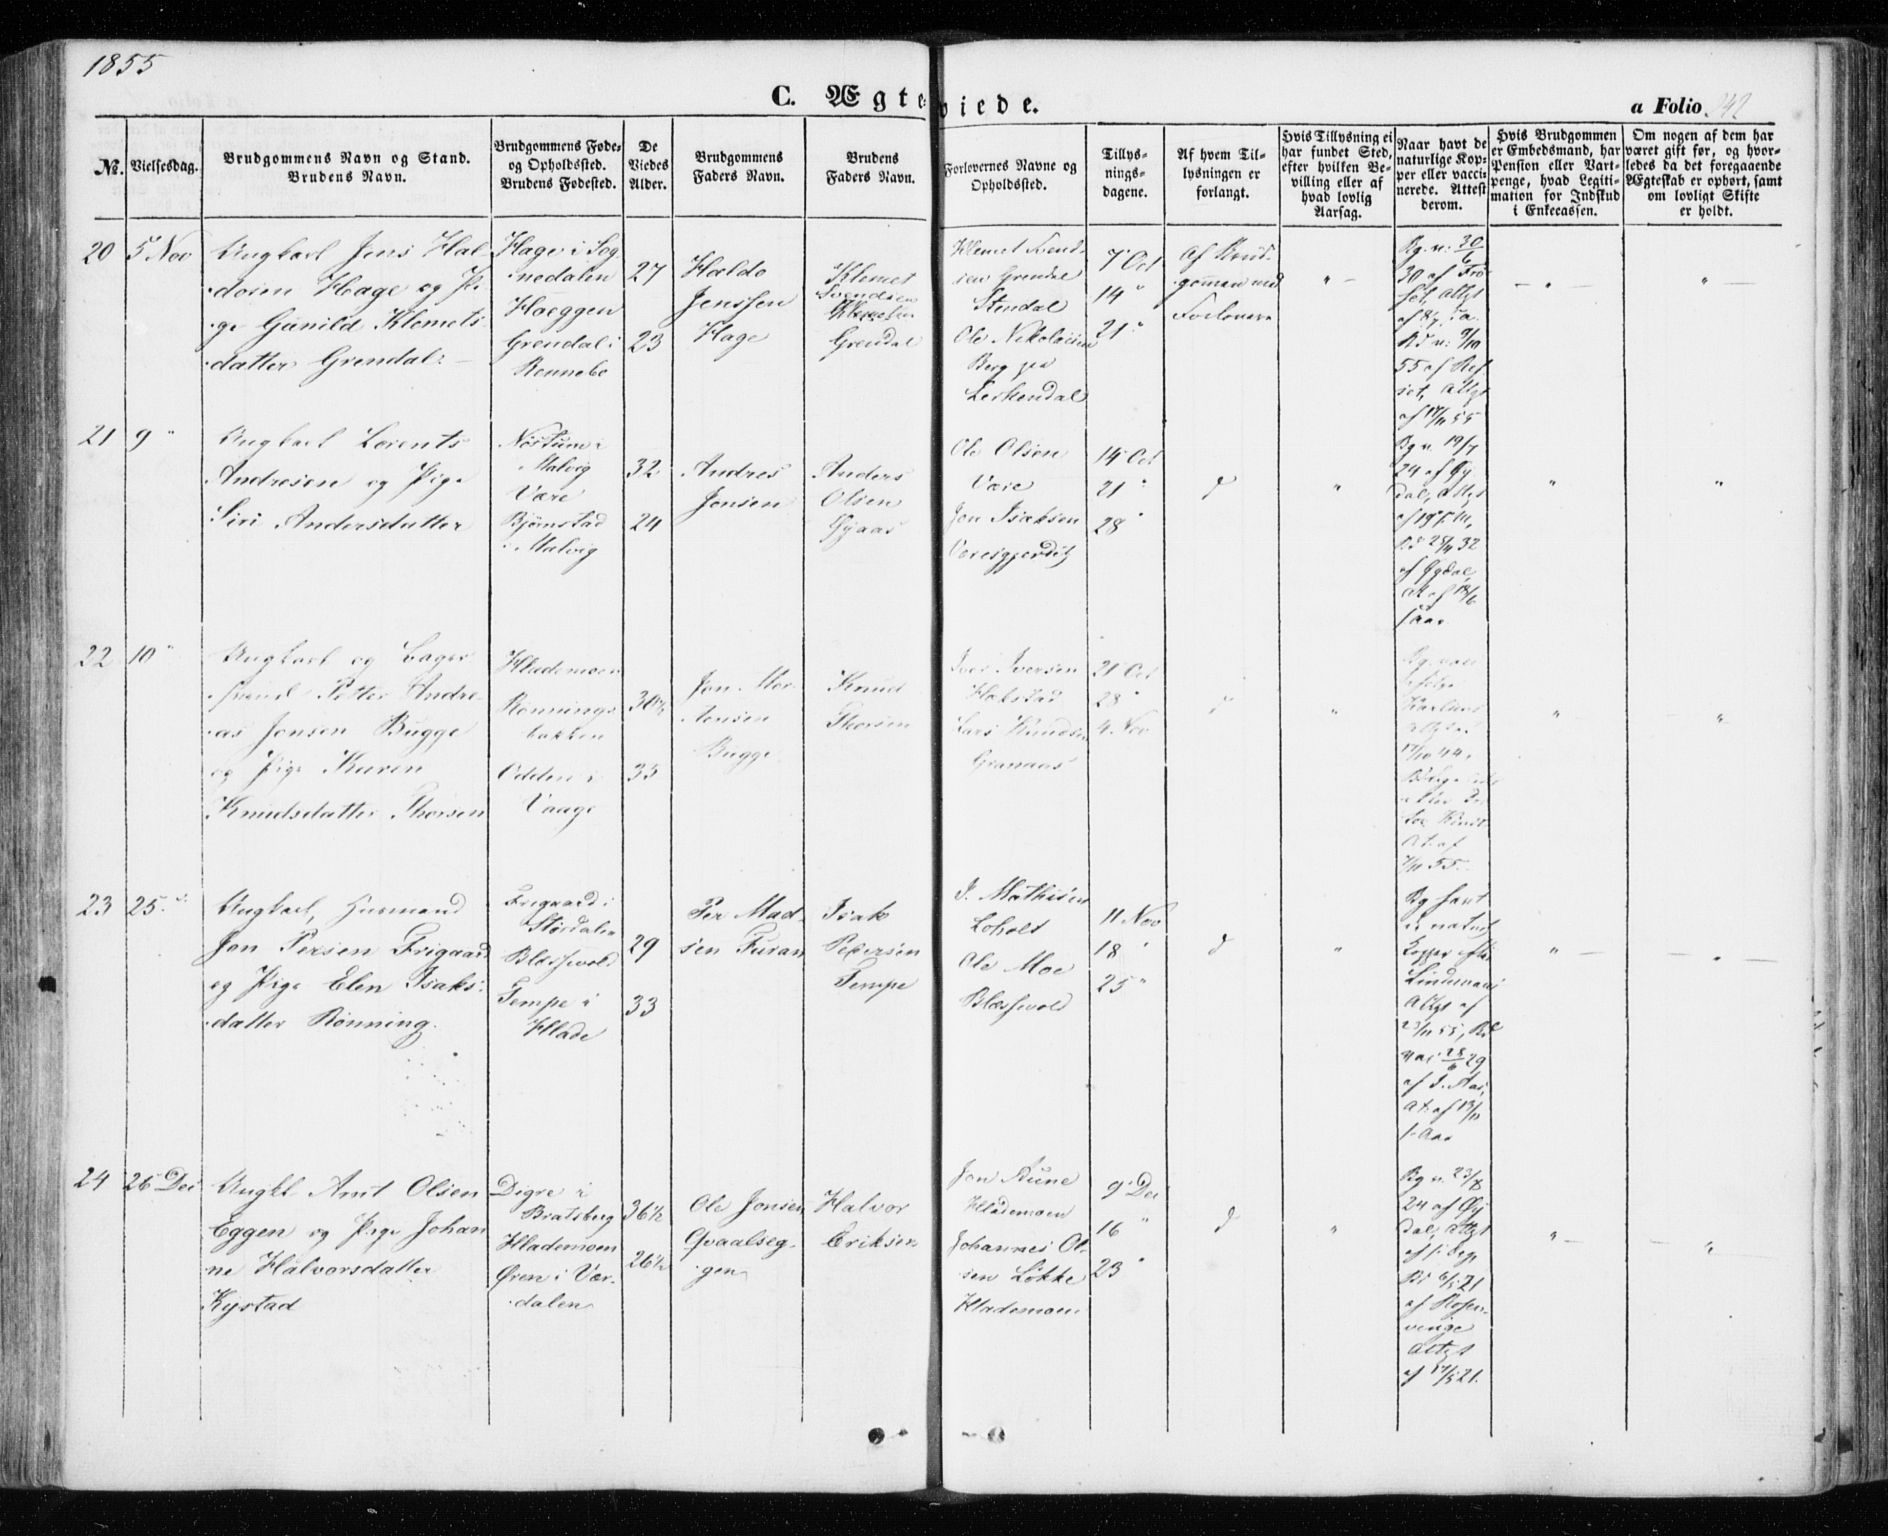 1855
C. Ægteviede.
a Folio 242
No.
Vielsesdag.
Brudgommens Navn og Stand.
Brudens Navn.
Brudgommens Føde-
og Opholdssted.
Brudens Fødested.
De
Viedes
Alder.
Brudgommens
Faders Navn.
Brudens
Faders Navn.
Forlovernes Navne og
Opholdssted.
Tillys-
nings-
dagene.
Af hvem Til-
lysningen er
forlangt.
Hvis Tillysning ei
har fundet Sted,
efter hvilken Be-
villing eller af
hvad lovlig
Aarsag.
Naar havt de
naturlige Kop-
per eller vacci-
nerede. Attest
derom.
Hvis Brudgommen
er Embedsmand, har
Pension eller Vart-
penge, hvad Legiti-
mation for Indskud
i Enkecassen.
Om nogen af dem har
været gift før, og hvor-
ledes da det foregaaende
Ægteskab er ophørt, samt
om lovligt Skifte
er holdt.
20
5 Nov
Ungkarl Jens Hal-
dosen Hage og Pi-
ge Gunild Klemets-
datter Grendal
Hage i Sog-
nedalen
Haeggen
Grendal i
Rennebo
27
23
Haldo
Jenssen
Hage
Klemet
Svendsen
Grendal
Klemet Svend-
sen Grendal
Stendal
Ole Nikolaisen
Berg paa
Lerkendal
7 Oct
14 "
21 "
Af Brud-
gommen med
Forlovere
"
Bg. v. 30/6
30 af
Attgt
55 af
Attgt
af 17/11 55
"
"
21
9 "
Ungkarl Lorents
Andresen og Pige
Siri Andersdatter
Nøstum i
Malvig
Være
Bjørnstad
i Malvig
32
24
Andres
Jonsen
Anders
Olsen
Ole Olsen
Være
Jon Isaksen
14 Oct
21 "
28 "
d
"
Bg v. 19/7
24 af Øy
dal, Attgt
32
af Øydal
At af 18/6
"
"
22
10 "
Ungkarl og Lager
Petter Andre-
as Jonsen Bugge
og Pige Karen
Knudsdatter Thorsen
Hlademoen
Rønnings-
bakken
Odden i
Vaage
30½
35
Jon Mor-
tensen
Bugge
Knud
Thorsen
Iver Iversen
Hakstad
Lars Knudsen
Granaas
21 Oct
28 "
4 Nov
d
"
17/10 44
At. af
55
"
"
23
25 "
Ungkarl, Husmand
Jon Persen Frigaard
og Pige Elen Isaks-
datter Rønning.
Frigaard i
Størdalen
Blæssevold
Tempe i
Hlade
29
33
Per Mad-
sen Furan
Isak
Petersen
Tempe
J. Mathisen
Loholt
Ole Moe
Blæssevold
11 Nov
18 "
25 "
d
"
Bg havt
de naturl
Kopper efter
Lindemans
Attgt af
23/11 55, Bd
vac 28/6 29
At. af 13/11
"
"
24
26 Dec
Ungkl Arnt Olsen
Eggen og Pige Johan-
ne Halvorsdatter
Kystad
Digre i
Bratsberg
Hlademoen
Øren i Vær-
dalen
36½
26½
Ole Jonsen
Qvaalseg-
gen
Halvor
Eriksen
Jon Aune
Hlademoen
Johannes Ol-
sen Løkke
Hlademoen
9 Dec
16 "
23 "
d
"
Bg v. 23/8
24 af Øy
dal, Attgt
Bd 6/5 21
af Rosen-
vinge
Attgt
af 17/5 21.
"
"